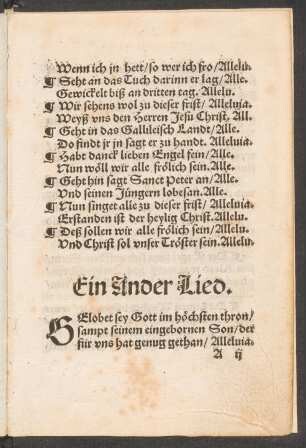 Wenn ich jn hett/so wer ich fro/Allelu.
¶ Seht an das Tuch darinn er lag/Alle.
Gewickelt biß an dritten tag. Allelu.
¶ Wir sehens wol zu dieser frist/ Alleluja.
Weyß vns den Herren Jesu Christ. All.
¶ Geht in das Gallileisch Landt/Alle.
Do findt jr jn sagt er zu handt. Alleluia
¶ Habt danck lieben Engel fein/Alle.
Nun wöll wir alle frölich sein. Alle.
¶ Geht hin sagt Sanct Peter an/Alle.
Vnd seinen Jüngern lobesan. Alle.
¶ Nun singet alle zu dieser frist/ Alleluia.
Erstanden ist der heylig Christ. Allelu.
¶ Deß sollen wir alle frölich sein/Allelu.
Vnd Christ sol vnser Tröster sein. Allelu.
Ein Ander Lied.
GElobet sey Gott im höchsten thron/
sampt seinem eingebornen Son/der
für vns hat genug gethan/ Alleluia.
A ij